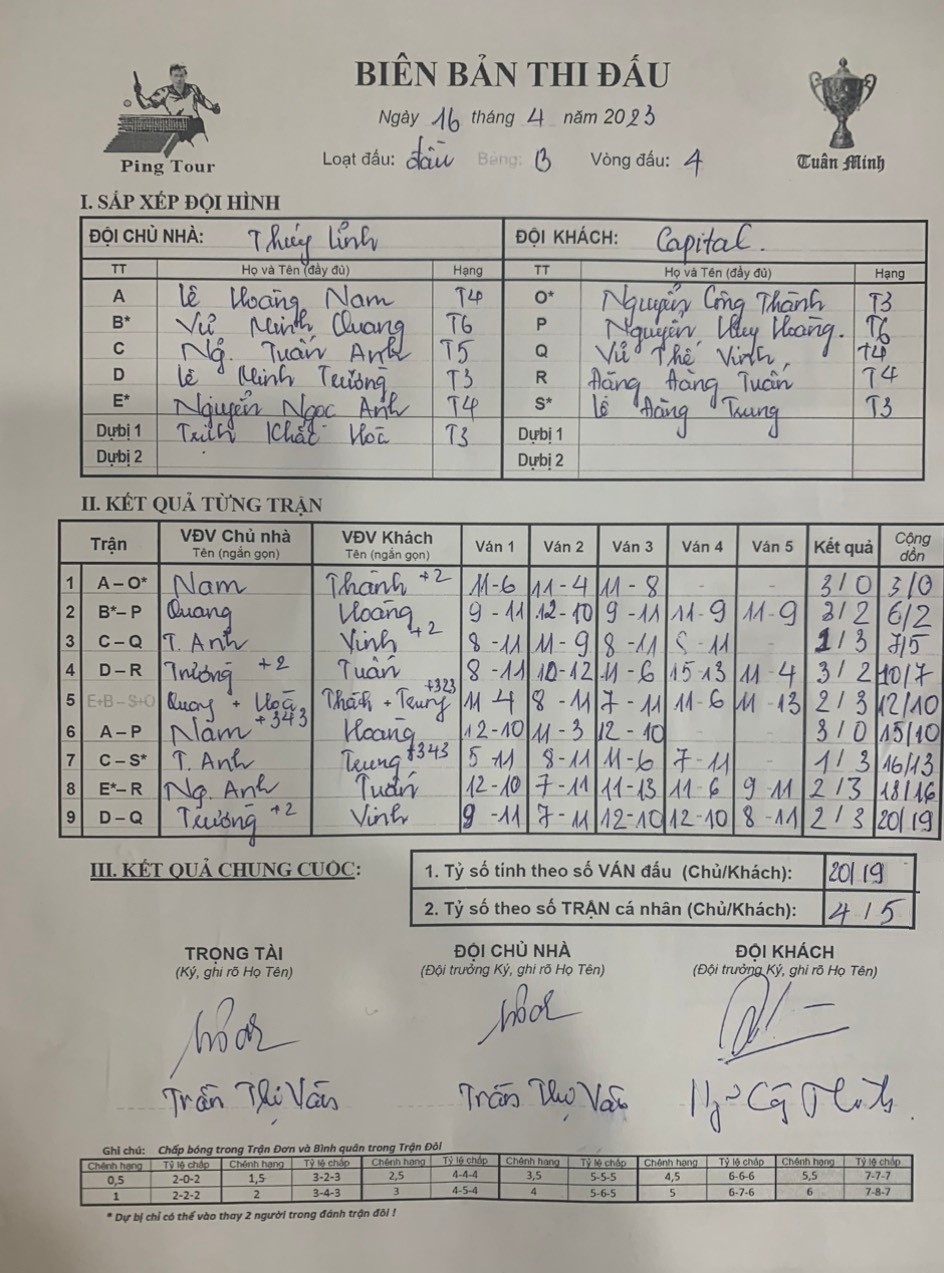 BIÊN BẢN THI ĐẤU
Ngày 16 tháng 4 năm 2023
Ping Tour
Loạt đấu: đầu Bảng: B Vòng đấu: 4
Tuân Minh
I. SẮP XẾP ĐỘI HÌNH
ĐỘI CHỦ NHÀ: Thúy Lĩnh ĐỘI KHÁCH: Capital.
TT Họ và Tên (đầy đủ) Hạng TT Họ và Tên (đầy đủ) Hạng
A Lê Hoàng Nam T4 O* Nguyễn Công Thành T3
B* Vũ Minh Quang T6 P Nguyễn Huy Hoàng. T6
C Ng. Tuấn Anh T5 Q Vũ Thế Vinh T4
D Lê Minh Trường T3 R Đặng Đăng Tuấn T4
E* Nguyễn Ngọc Anh T4 S* Lê Đăng Trung T3
Dự bị 1 Trịnh Khắc Hoà T3 Dự bị 1
Dự bị 2 Dự bị 2
II. KẾT QUẢ TỪNG TRẬN
Trận VĐV Chủ nhà Tên (ngắn gọn) VĐV Khách Tên (ngắn gọn) Ván 1 Ván 2 Ván 3 Ván 4 Ván 5 Kết quả Cộng dồn
1 A – O* Nam Thành +2 11-6 11-4 11-8 - - 3/0 3/0
2 B* – P Quang Hoàng 9-11 12-10 9-11 11-9 11-9 3/2 6/2
3 C – Q T. Anh Vinh +2 8-11 11-9 8-11 8-11 - 1/3 7/5
4 D – R Trường +2 Tuấn 8-11 10-12 11-6 15-13 11-4 3/2 10/7
5 E+B – S+O Quang + Hoà Thành + Trung +323 11-4 8-11 7-11 11-6 11-13 2/3 12/10
6 A – P Nam +343 Hoàng 12-10 11-3 12-10 - 3/0 15/10
7 C – S* T. Anh Trung +343 5-11 8-11 11-6 7-11 - 1/3 16/13
8 E* – R Ng. Anh Tuấn 12-10 7-11 11-13 11-6 9-11 2/3 18/16
9 D – Q Trường +2 Vinh 9-11 7-11 12-10 12-10 8-11 2/3 20/19
III. KẾT QUẢ CHUNG CUỘC:
1. Tỷ số tính theo số VÁN đấu (Chủ/Khách): 20/19
2. Tỷ số theo số TRẬN cá nhân (Chủ/Khách): 4/5
TRỌNG TÀI ĐỘI CHỦ NHÀ ĐỘI KHÁCH
(Ký, ghi rõ Họ Tên) (Đội trưởng Ký, ghi rõ Họ Tên) (Đội trưởng Ký, ghi rõ Họ Tên)
Trần Thị Vân Trần Thị Vân
Ghi chú: Chấp bóng trong Trận Đơn và Bình quân trong Trận Đôi
Chênh hạng Tỷ lệ chấp Chênh hạng Tỷ lệ chấp Chênh hạng Tỷ lệ chấp Chênh hạng Tỷ lệ chấp Chênh hạng Tỷ lệ chấp Chênh hạng Tỷ lệ chấp
0,5 2-0-2 1,5 3-2-3 2,5 4-4-4 3,5 5-5-5 4,5 6-6-6 5,5 7-7-7
1 2-2-2 2 3-4-3 3 4-5-4 4 5-6-5 5 6-7-6 6 7-8-7
* Dự bị chỉ có thể vào thay 2 người trong đánh trận đôi !